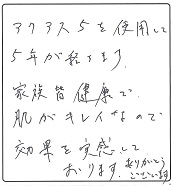 アクアス5を使用して
5年が経ちます。
家族皆健康で
肌がキレイなので
効果を実感して
おります。ありがとう
ございます。